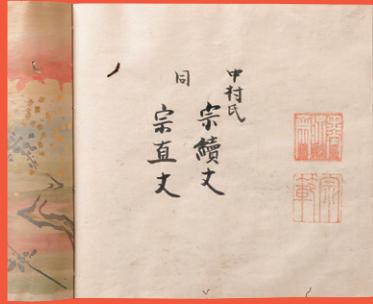 中村氏
宗續丈
同
宗直丈